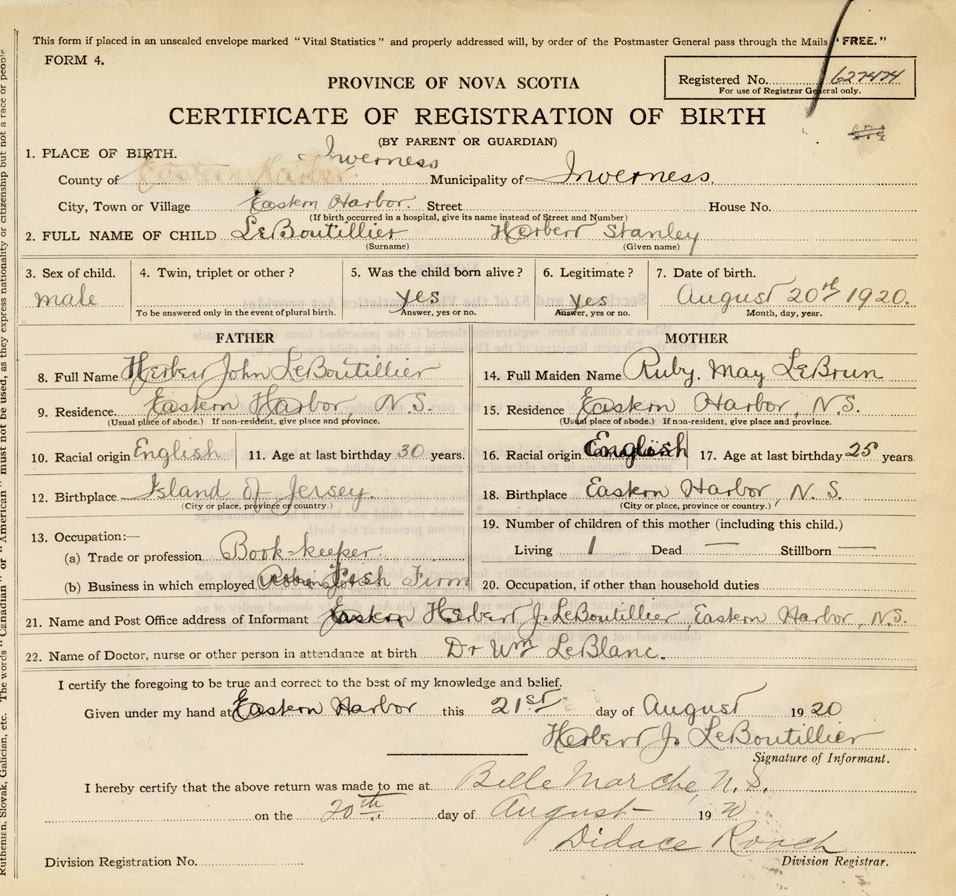 This form if placed in an unsealed envelope marked "Vital Statistics" and properly addressed will, by order of the Postmaster General pass through the Mails "FREE."
FORM 4.
PROVINCE OF NOVA SCOTIA
Registered No. 627474
For use of Registrar General only.
CERTIFICATE OF REGISTRATION OF BIRTH
(BY PARENT OR GUARDIAN)
1. PLACE OF BIRTH.
County of Inverness Municipality of Inverness.
City, Town or Village Eastern Harbor. Street House No.
(If birth occurred in a hospital, give its name instead of Street and Number)
2. FULL NAME OF CHILD LeBoutillier Herbert Stanley
(Surname) (Given name)
3. Sex of child. 4. Twin, triplet or other? 5. Was the child born alive? 6. Legitimate? 7. Date of birth.
male yes yes August 20th 1920.
To be answered only in the event of plural birth. Answer, yes or no. Answer, yes or no. Month, day, year.
FATHER
8. Full Name Herbert John LeBoutillier
9. Residence. Eastern Harbor N.S.
(Usual place of abode.) If non-resident, give place and province.
10. Racial origin English 11. Age at last birthday 30 years.
12. Birthplace Island of Jersey.
(City or place, province or country.)
13. Occupation:—
(a) Trade or profession Book-keeper.
(b) Business in which employed Fish Firm
MOTHER
14. Full Maiden Name Ruby. May LeBrun
15. Residence Eastern Harbor, N.S.
(Usual place of abode.) If non-resident, give place and province.
16. Racial origin English 17. Age at last birthday 25 years
18. Birthplace Eastern Harbor, N.S.
(City or place, province or country.)
19. Number of children of this mother (including this child.)
Living 1 Dead — Stillborn —
20. Occupation, if other than household duties
21. Name and Post Office address of Informant Eastern Herbert J. LeBoutillier, Eastern Harbor, N.S.
22. Name of Doctor, nurse or other person in attendance at birth Dr Wm LeBlanc.
I certify the foregoing to be true and correct to the best of my knowledge and belief.
Given under my hand at Eastern Harbor this 21st day of August 1920
Herbert J. LeBoutillier
Signature of Informant.
I hereby certify that the above return was made to me at Belle Marche, N.S.
on the 20th day of August 1920
Didace Roach
Division Registration No. Division Registrar.
Ruthenian, Slovak, Galician, etc. The words "Canadian" or "American" must not be used, as they express nationality or citizenship but not a race or people